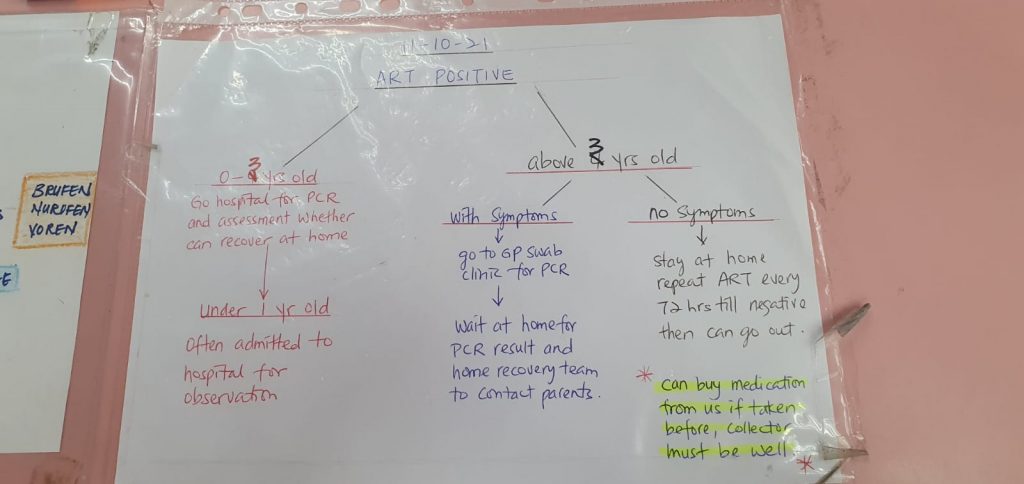 11-10-21
ART POSITIVE
0-3 yrs old
Go hospital for PCR
and assessment whether
can recover at home
under 1 yr old
Often admitted to
hospital for
observation
above 3 yrs old
with symptoms
go to GP swab
clinic for PCR
wait at home for
PCR result and
home recovery team
to contact parents.
no symptoms
stay at home
repeat ART every
72 hrs till negative
then can go out.
* can buy medication
from us if taken
before, collector
must be well. *
BRUFEN
NUROFEN